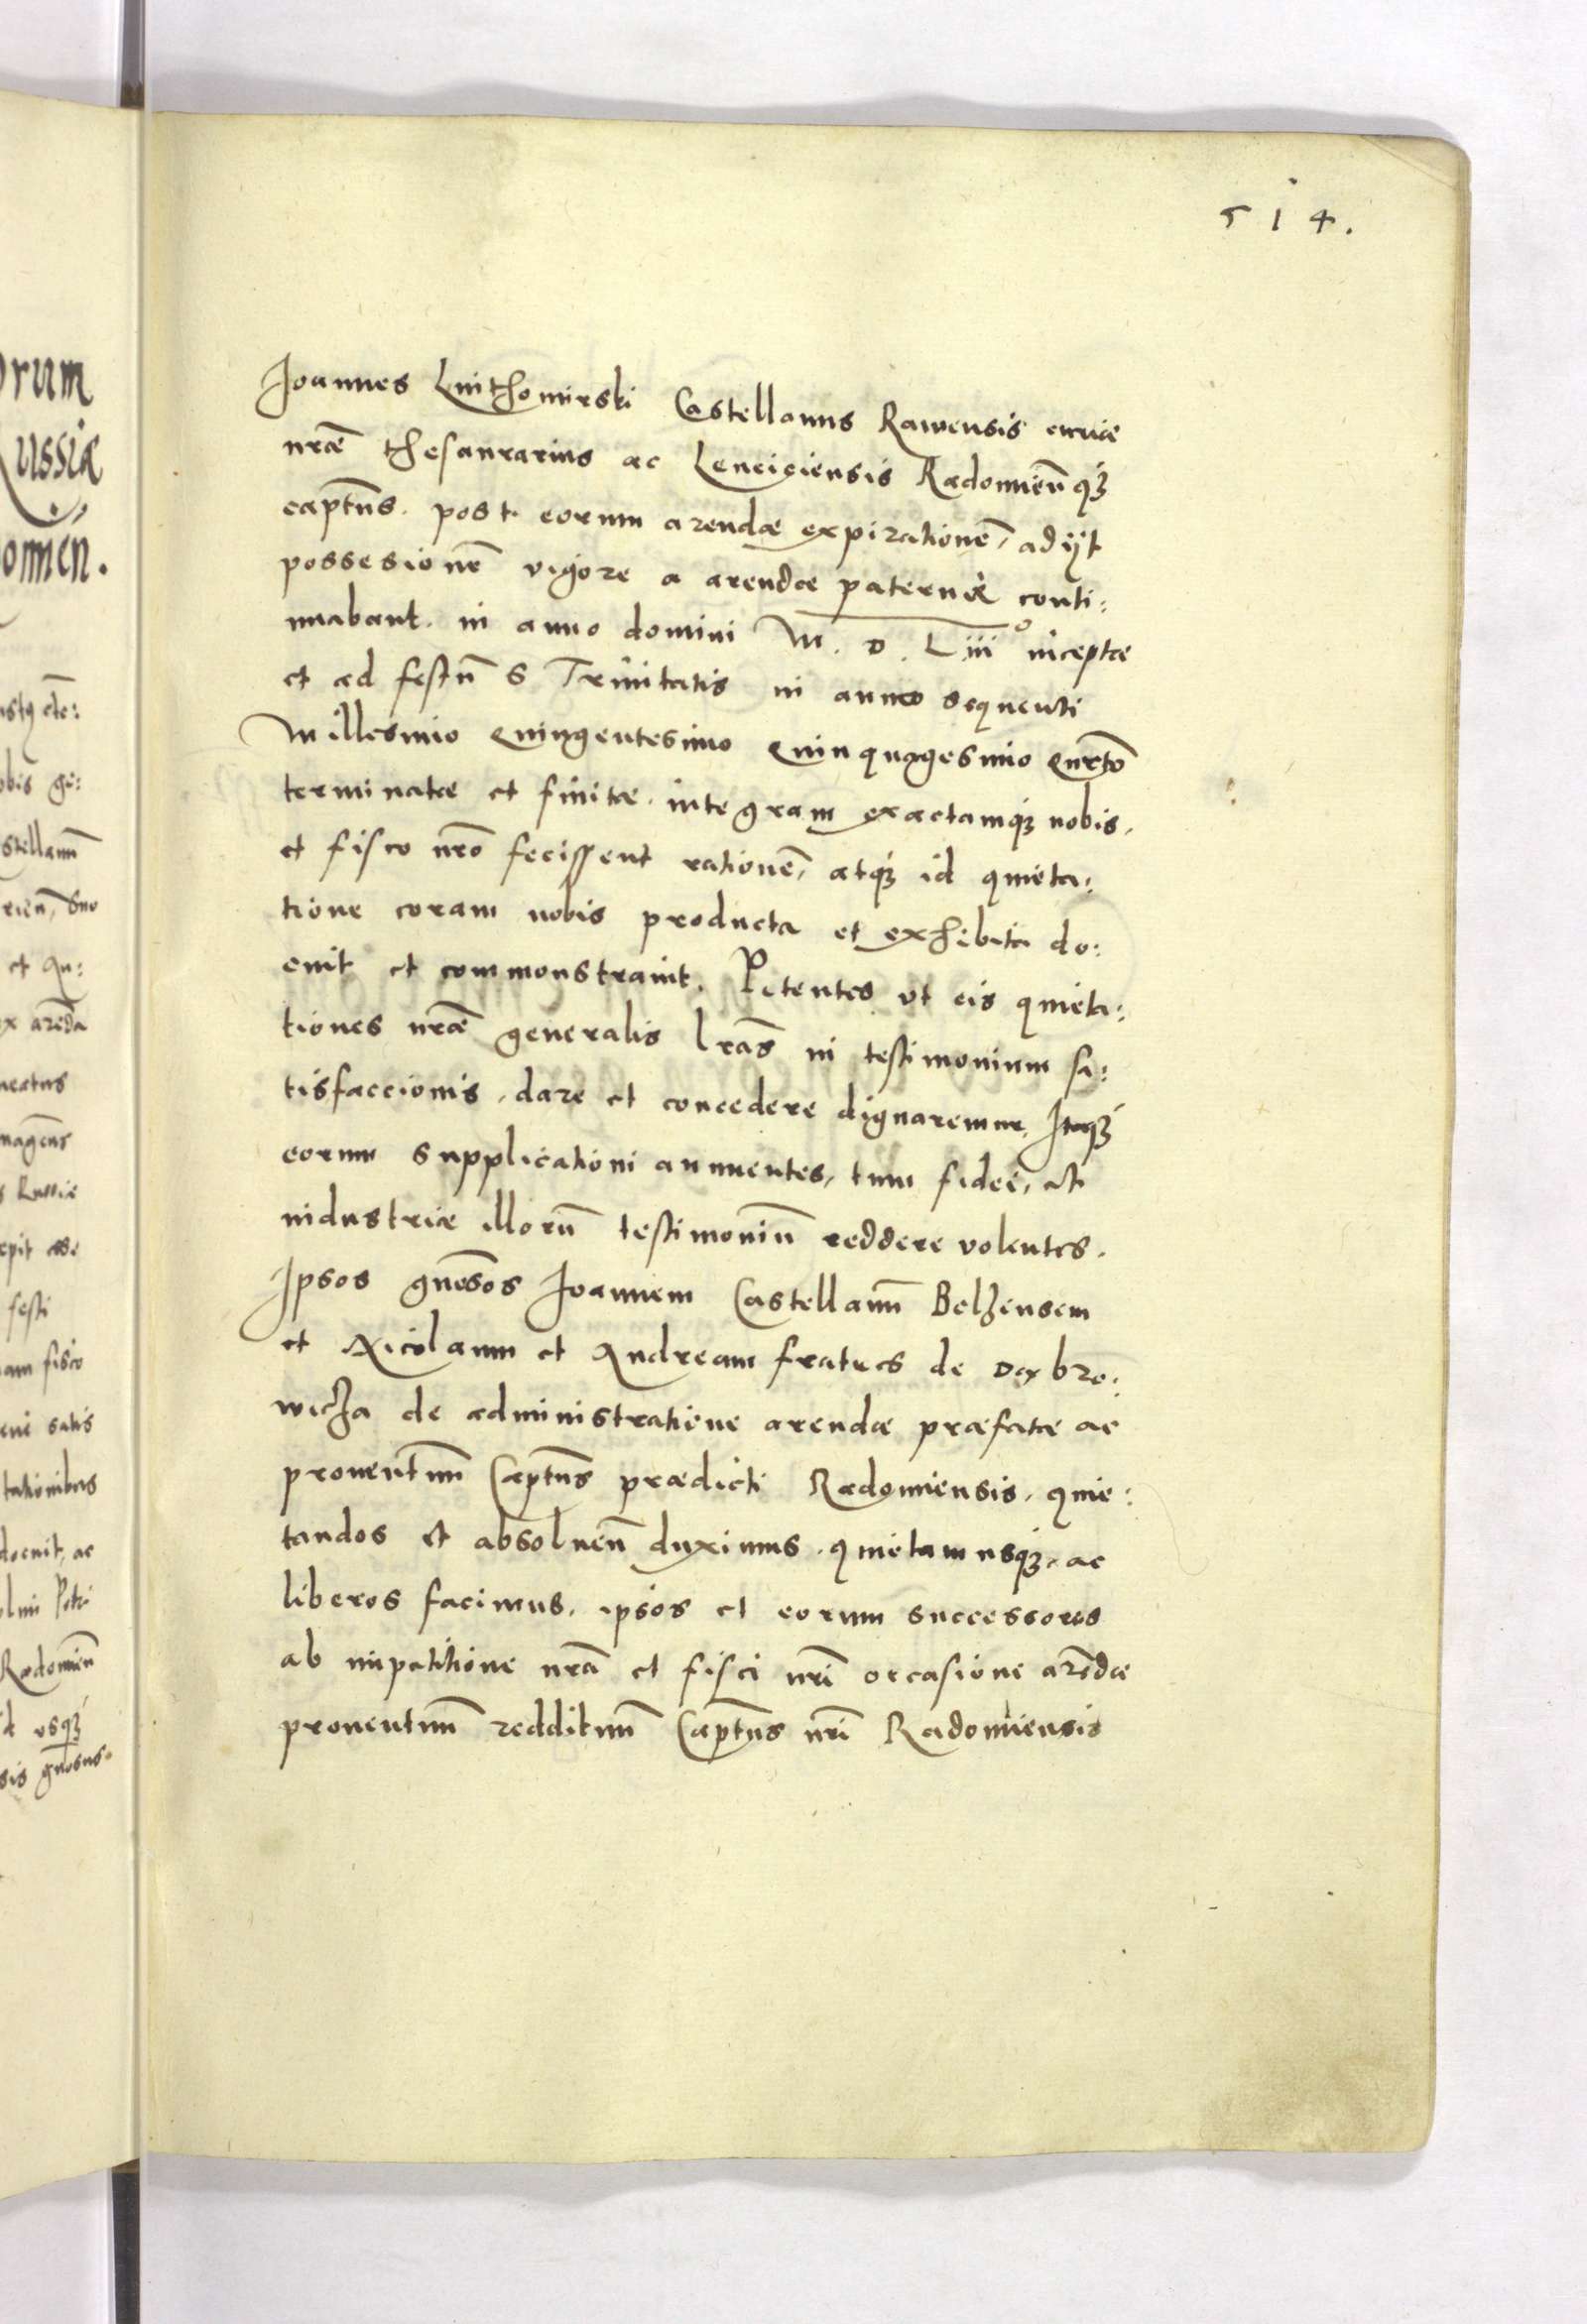 514.
Joannes Luithomirski Castellanus Rawensis curiæ
nræ thesaurarius ac Lenciciensis Radomieñ qȝ
captus. post eorum arendæ expirationē, adijt
possesionē vigore a arendæ paternæ conti:
nuabant. in anno domini M. D. Liii° inceptæ
et ad festū S Trinitatis in anno sequenti
Millesimo Quingentesimo Quinquagesimo Qurto
terminatæ et finitæ. integram exactamqȝ nobis.
et fisco nro fecissent rationē, atqȝ id quieta:
tione coram nobis producta et exhibita do:
cuit et commonstrauit. Petentes vt eis quieta:
tiones nræ generalis lras in testimonium sa:
tisfaccionis, dare et concedere dignaremur, Itaqȝ
eorum supplicationi annuentes, tum fidei, et
industriæ illorū testimoniū reddere volentes.
Ipsos gnosos Joannem Castellanū Belzensem
et Nicolaum et Andream fratres de Dąbro:
wicza de administratione arendæ præfatæ ac
prouentuū Captus prædicti Radomiensis, quie:
tandos et absoluen̄ duximus. quietamusqȝ. ac
liberos facimus, ipsos et eorum successores
ab impatitione nrā et fisci nrī occasione arēdæ
prouentuū reddituū Captus nrī Radomiensis
orum
ussiæ
omien.
stellanū
arēda
Russiæ
festi
am fisco
satis
tationibus
docuit, ac
Petri
Radomień
vsqȝ
sis gnosus.